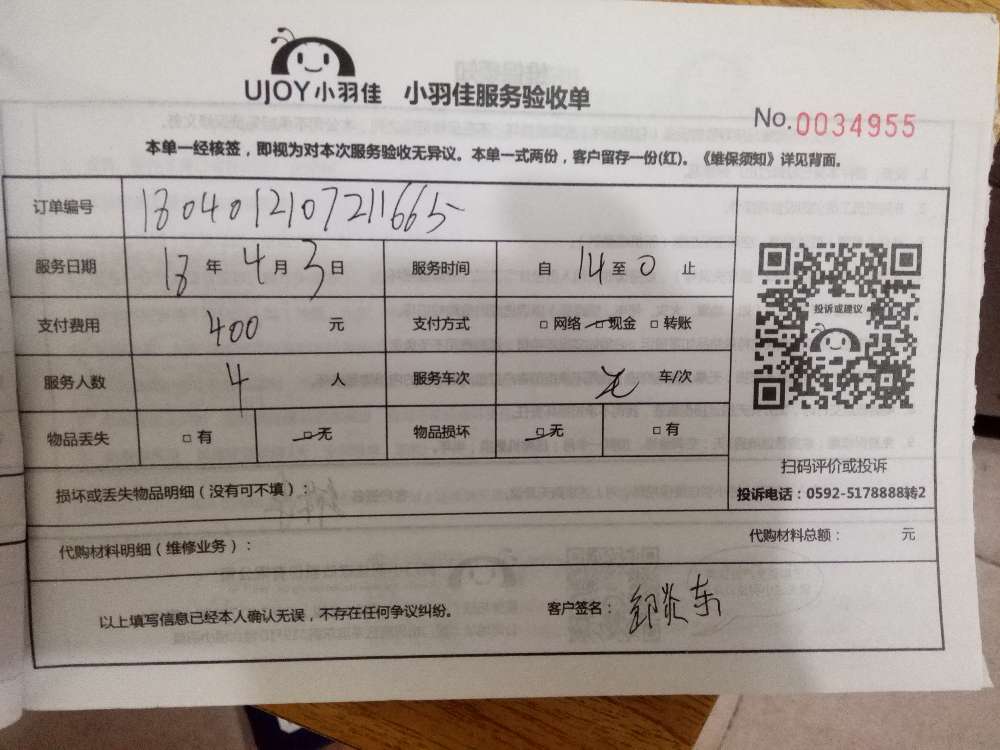 UJOY小羽佳 小羽佳服务验收单
No.0034955
本单一经核签，即视为对本次服务验收无异议。本单一式两份，客户留存一份(红)。《维保须知》详见背面。
订单编号 180401210721665
服务日期 18 年 4 月 3 日 服务时间 自 14 至 0 止
支付费用 400 元 支付方式 □ 网络 □ 现金 □ 转账
投诉或建议
服务人数 4 人 服务车次 无 车/次
物品丢失 □ 有 □ 无 物品损坏 □ 无 □ 有
扫码评价或投诉
投诉电话：0592-5178888转2
损坏或丢失物品明细（没有可不填）：
代购材料明细（维修业务）： 代购材料总额： 元
以上填写信息已经本人确认无误，不存在任何争议纠纷。 客户签名：